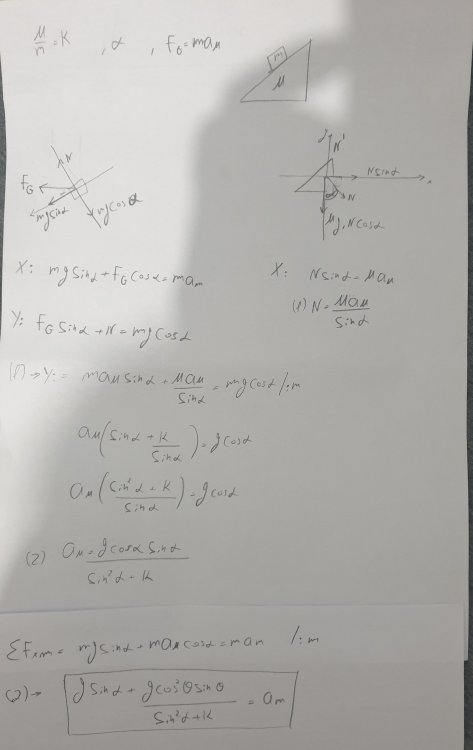 M/m = K , α , F_G = ma_M
m
M
y
N N'
F_G N sinα x
α N
mg sinα mg cosα Mg, N cosα
X: mg sinα + F_G cosα = ma_m X: N sinα = Ma_M
Y: F_G sinα + N = mg cosα (1) N = Ma_M / sinα
(1) → Y: = ma_M sinα + Ma_M / sinα = mg cosα /:m
a_M (sinα + K / sinα) = g cosα
a_M (sin²α + K / sinα) = g cosα
(2) a_M = g cosα sinα / sin²α + K
ΣF_xm = mg sinα + ma_M cosα = ma_m /:m
(2) → g sinα + g cos²θ sinθ / sin²α + K = a_m